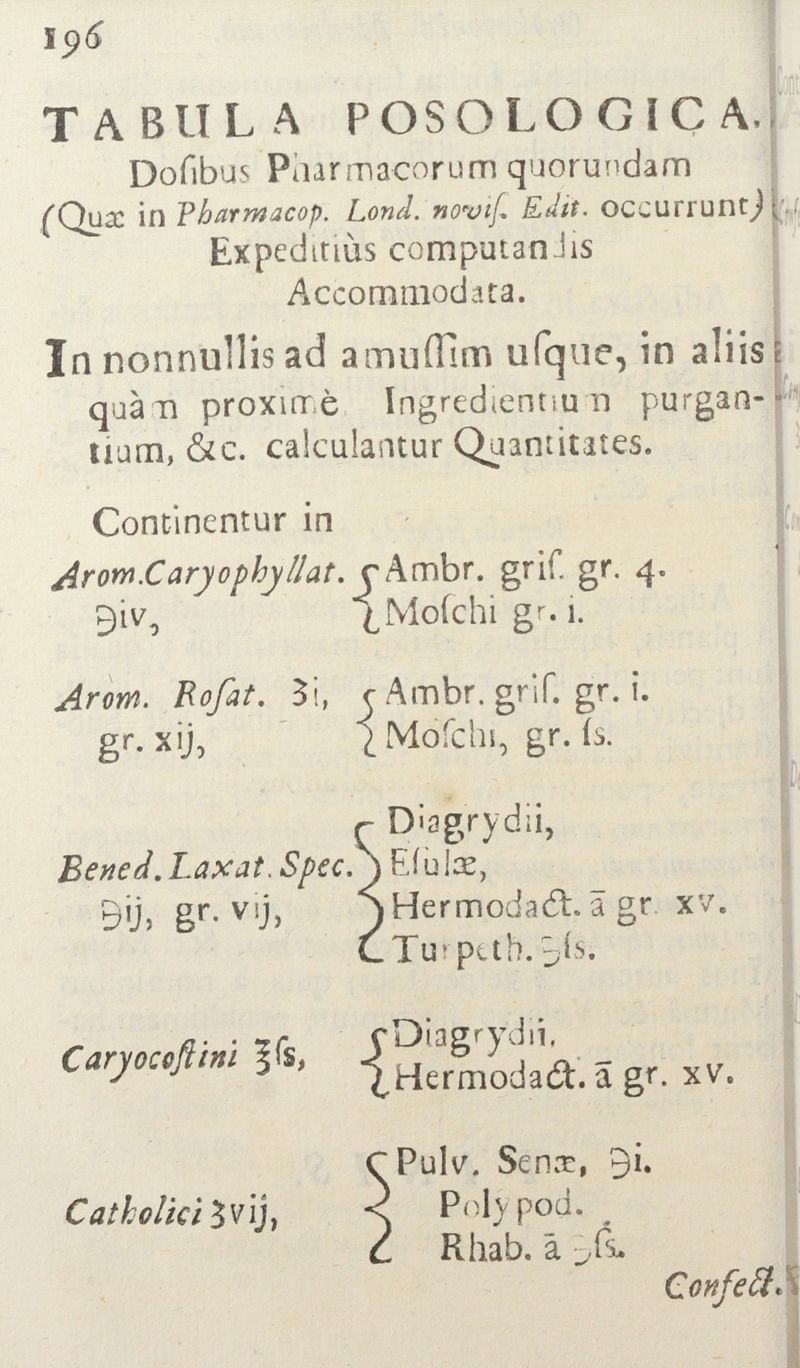 196
TABULA POSOLOGICA.
Doſibus Pharmacorum quorundam
(Quæ in Pharmacop. Lond. noviſ. Edit. occurrunt)
Expeditiùs computandis
Accommodata.
In nonnullis ad amuſſim uſque, in aliis
quàm proximè Ingredientium purgan-
tium, &c. calculantur Quantitates.
Continentur in
Arom. Caryophyllat. { Ambr. griſ. gr. 4.
℈iv, { Moſchi gr. i.
Arom. Roſat. ʒi, { Ambr. griſ. gr. i.
gr. xij, { Moſchi, gr. ſs.
{ Diagrydii,
Bened. Laxat. Spec. { Eſulæ,
℈ij, gr. vij, { Hermodact. ā gr. xv.
{ Turpeth. ℈ſs.
Caryocoſtini ℥ſs, { Diagrydii,
{ Hermodact. ā gr. xv.
{ Pulv. Senæ, ℈i.
Catholici ʒvij, { Polypod.
{ Rhab. ā ℈ſs.
Confect.